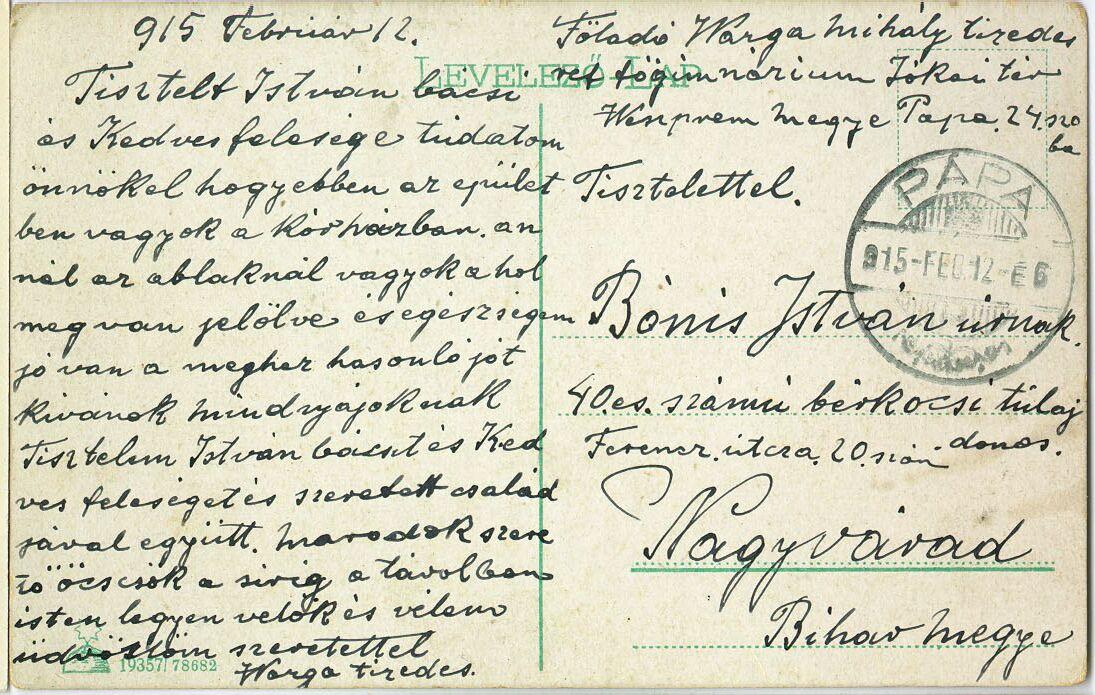 915 Február 12.
Tisztelt István bácsi
és Kedves felesége tudatom
önnökel hogy ebben az épület
ben vagyok a kórházban. an
nál az ablaknál vagyok a hol
meg van jelölve és egészségem
jó van a megher hasonló jót
kivánok mindnyájoknak
Tisztelem István bácsit és Ked
ves feleségét és szeretett család
jával együtt. maradok szere
tő öcscsök a sirig a távolban
isten legyen velök és vélem
üdvözlöm szeretettel
Warga tizedes.
19357/78682
LEVELEZŐ-LAP
Föladó Warga Mihály tizedes
ref főgimnázium Jókai tér
Weszprem megye Pápa. 24. szo
ba
Tisztelettel.
PÁPA
915-FEB.12-É6
Bónis István úrnak.
40.es. számú bérkocsi tulaj
donos.
Ferencz. útcza. 20. szám
Nagyvárad
Bihar megye